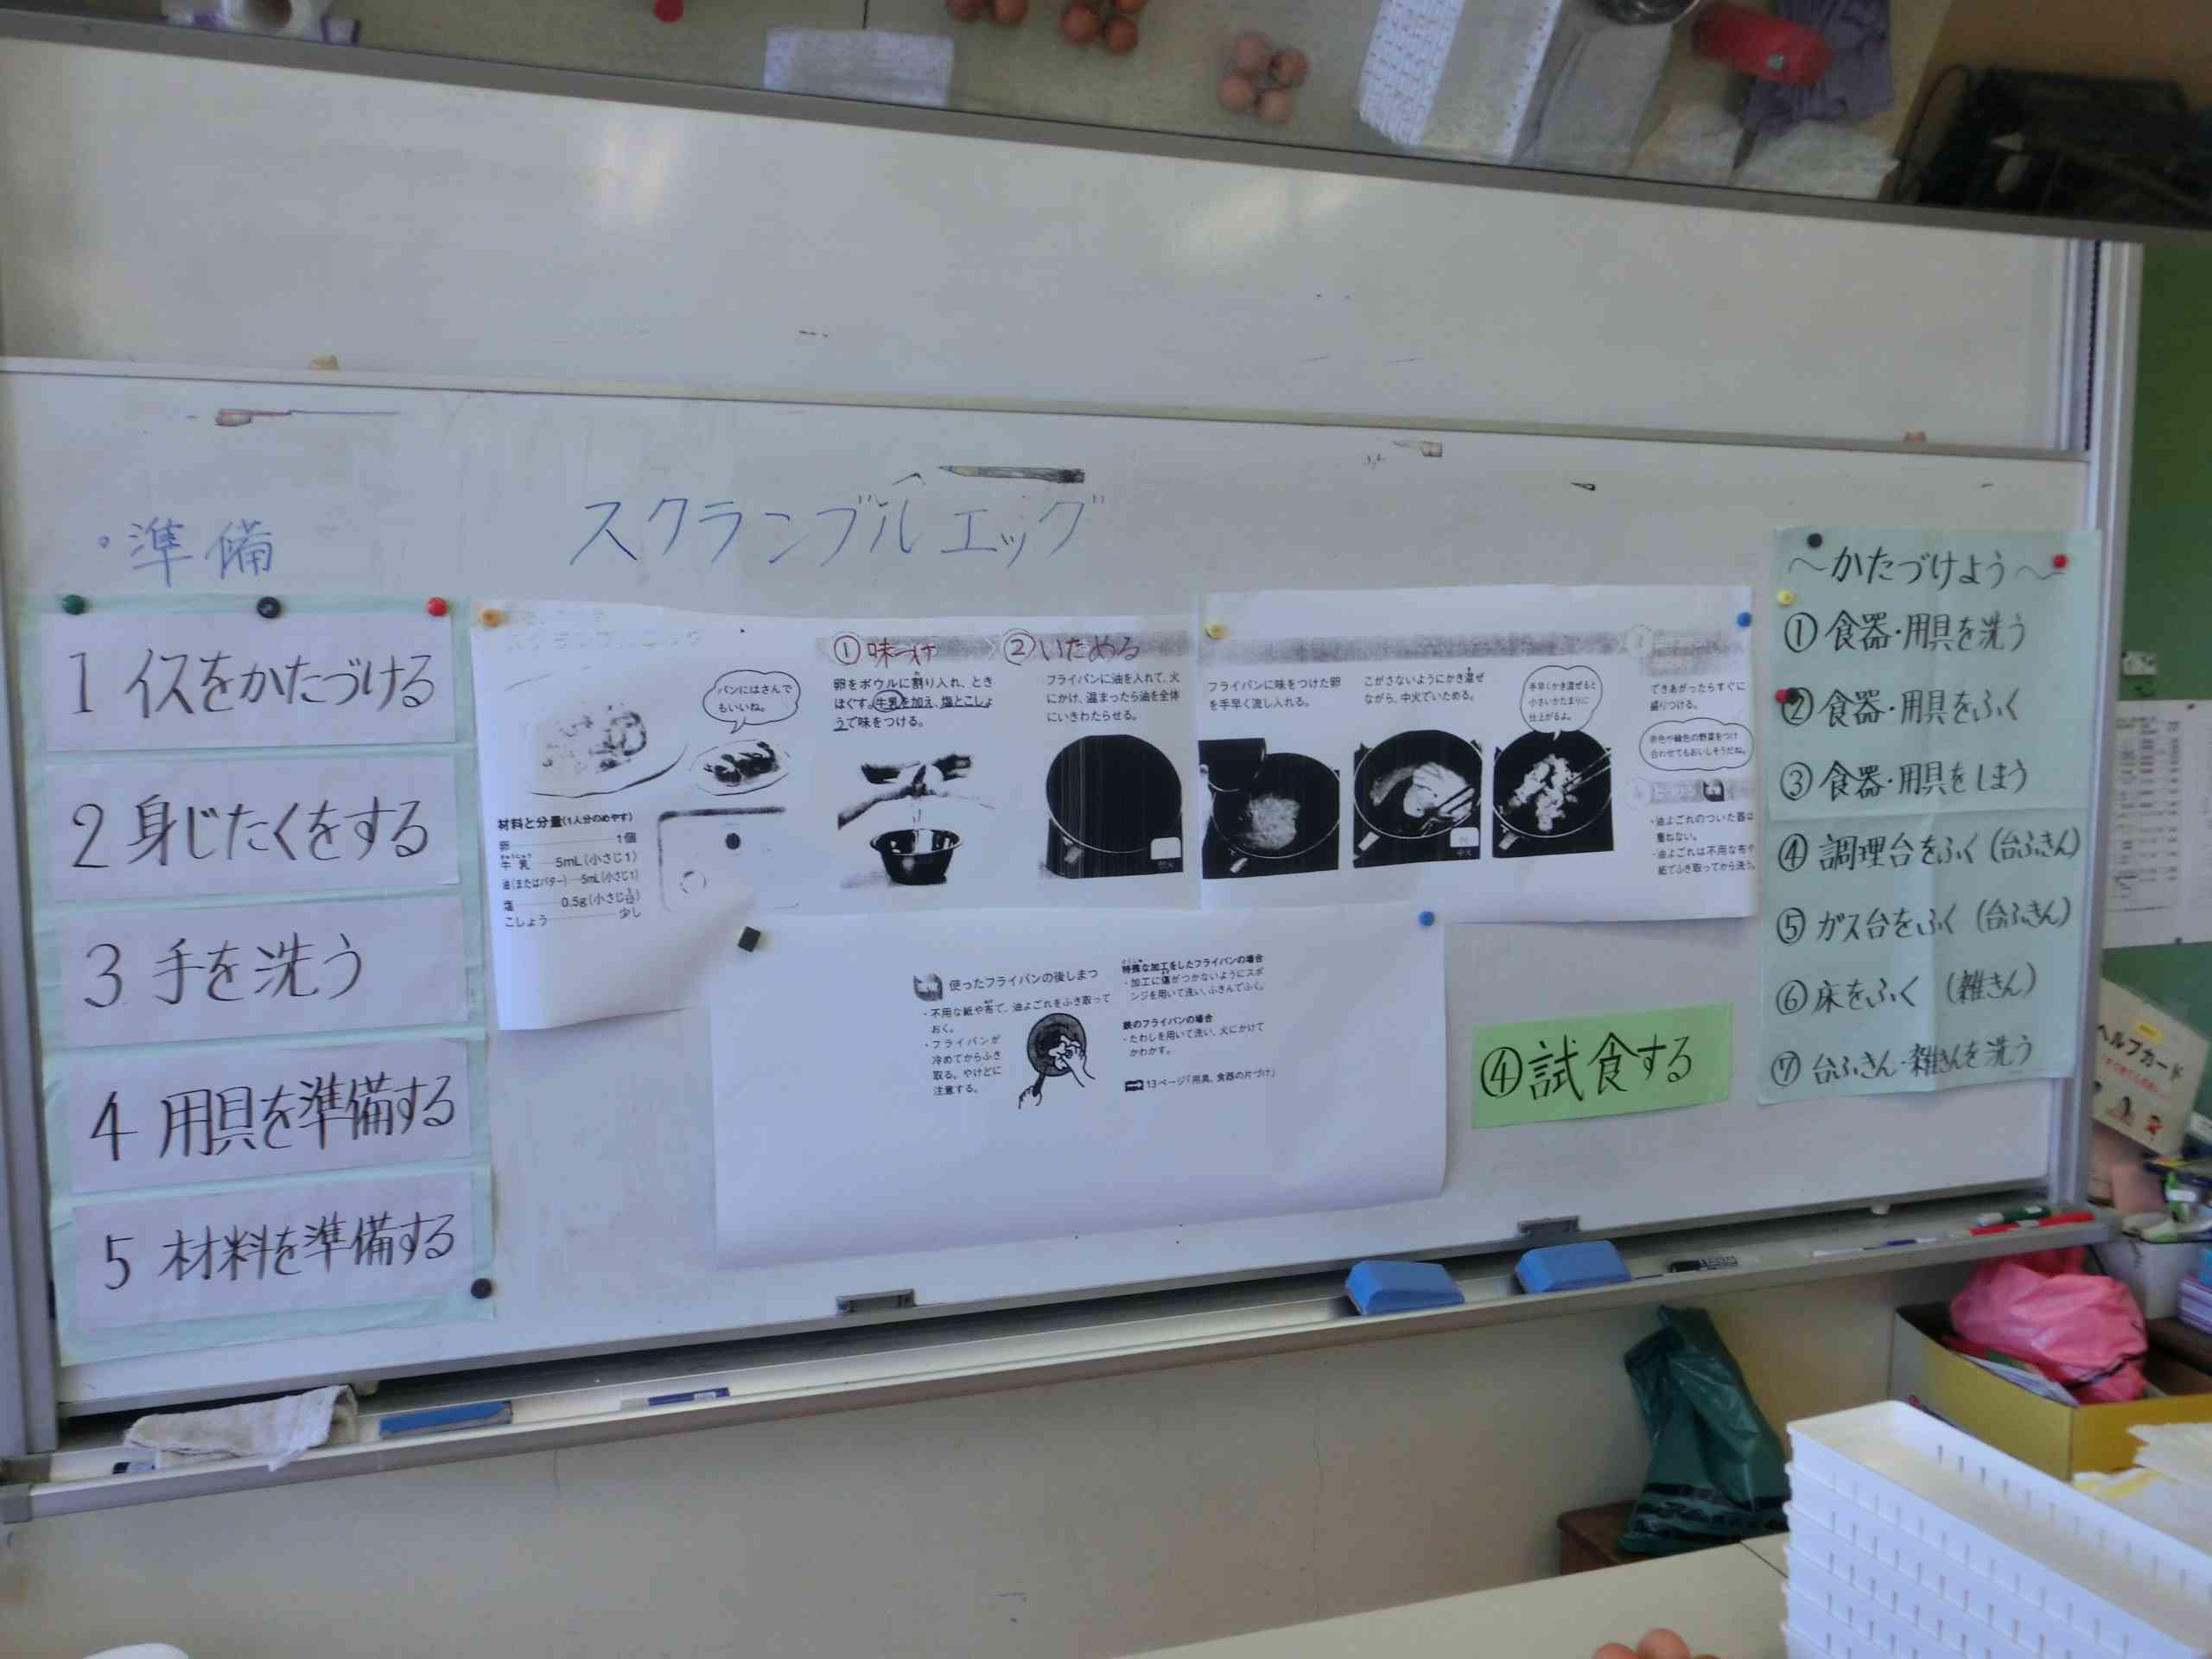 ・準備
1 イスをかたづける
2 身じたくをする
3 手を洗う
4 用具を準備する
5 材料を準備する
スクランブルエッグ
パンにはさんで
もいいね。
材料と分量(1人分のめやす)
卵 1個
牛乳 5mL(小さじ1)
油(またはバター) 5mL(小さじ1)
塩 0.5g(小さじ
こしょう 少し
①味つけ
卵をボウルに割り入れ、とき
ほぐす。牛乳を加え、塩とこしょ
うで味をつける。
②いためる
フライパンに油を入れて、火
にかけ、温まったら油を全体
にいきわたらせる。
フライパンに味をつけた卵
を手早く流し入れる。
こがさないようにかき混ぜ
ながら、中火でいためる。
手早くかき混ぜると
小さいかたまりに
仕上がるよ。
できあがったらすぐに
盛りつける。
赤色や緑色の野菜をつけ
合わせてもおいしそうだね。
・油よごれのついた器は
重ねない。
・油よごれは不用な布や
紙でふき取ってから洗う。
使ったフライパンの後しまつ
・不用な紙や布で、油よごれをふき取って
おく。
・フライパンが
冷めてからふき
取る。やけどに
注意する。
特殊な加工をしたフライパンの場合
・加工に傷がつかないようにスポ
ンジを用いて洗い、ふきんでふく。
鉄のフライパンの場合
・たわしを用いて洗い、火にかけて
かわかす。
13ページ「用具、食器の片づけ」
④試食する
～かたづけよう～
①食器・用具を洗う
②食器・用具をふく
③食器・用具をしまう
④調理台をふく(台ふきん)
⑤ガス台をふく(台ふきん)
⑥床をふく(雑きん)
⑦台ふきん・雑きんを洗う
ヘルプカード